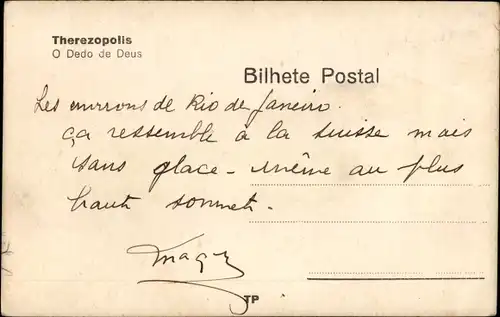 Therezopolis
O Dedo de Deus
Bilhete Postal
Les environs de Rio de Janeiro.
ça ressemble à la Suisse mais
sans glace - même au plus
haut sommet.
TP